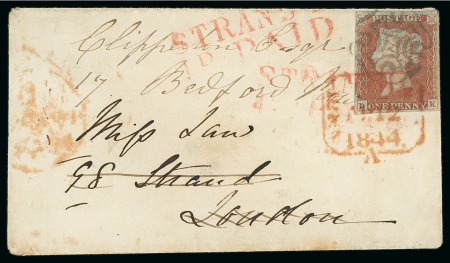 STRAND
PAID
POSTAGE
17. Bedford
ONE PENNY
12
1844
Miss Law
98 Strand
London